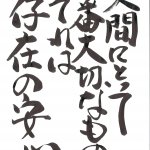 人間にとって
一番大切なもの
それは
存在の安